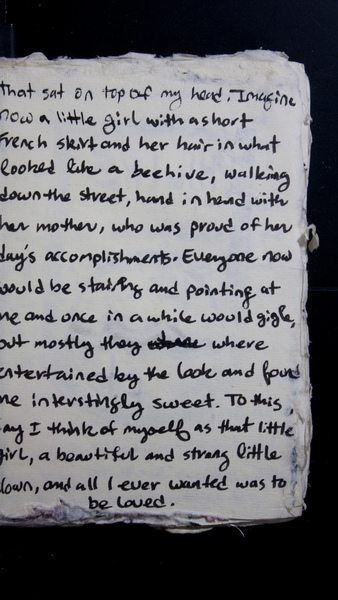 that sat on top of my head. Imagine
now a little girl with a short
French skirt and her hair in what
looked like a beehive, walking
down the street, hand in hand with
her mother, who was proud of her
day's accomplishments. Everyone now
would be stairing and pointing at
me and once in a while would gigle,
but mostly they where
entertained by the look and found
me interstingly sweet. To this
day I think of myself as that little
girl, a beautiful and strang little
clown, and all I ever wanted was to
be loved.